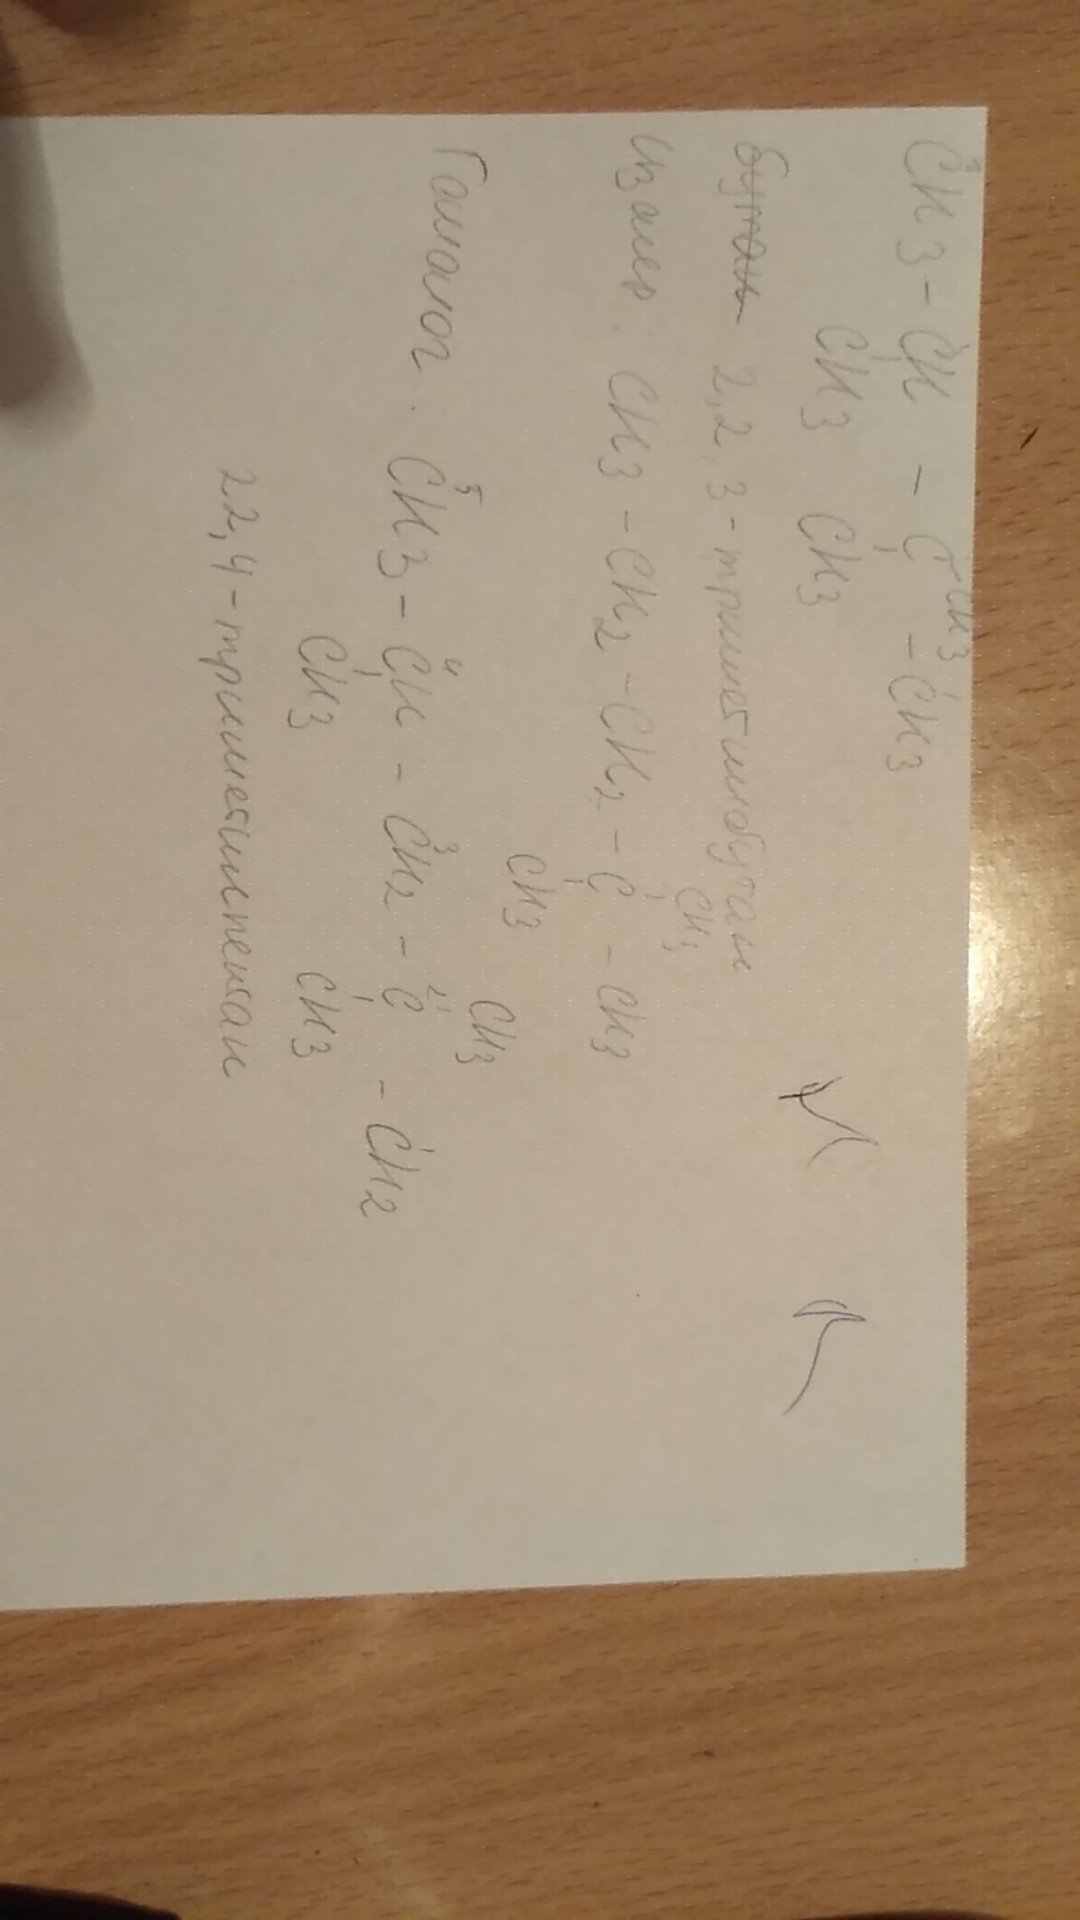 CH3 - CH - C - CH3
CH3
CH3 CH3
бутан 2,2,3-триметилбутан
CH3
Изомер: CH3 - CH2 - CH2 - C - CH3
CH3
CH3
Гомолог. 5CH3 - 4CH - 3CH2 - 2C - CH2
CH3 CH3
22,4-триметилпентан